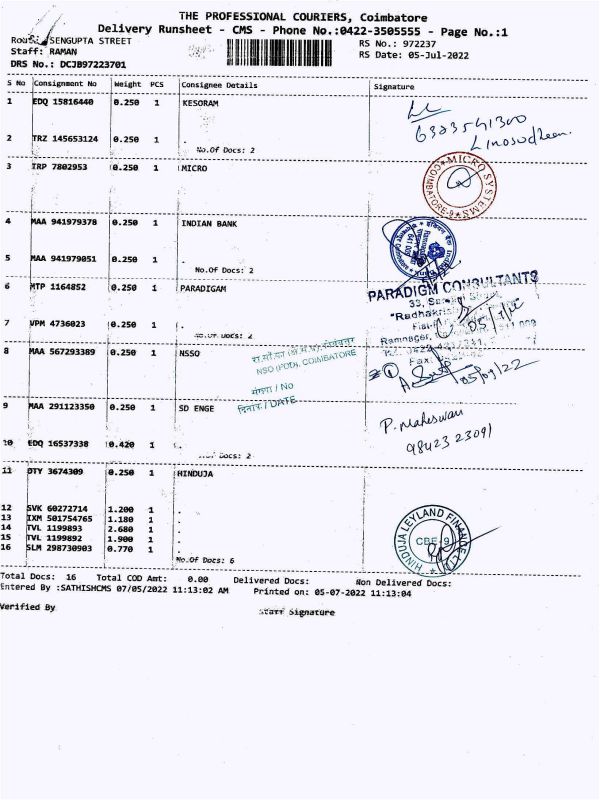 THE PROFESSIONAL COURIERS, Coimbatore
Delivery Runsheet - CMS - Phone No.:0422-3505555 - Page No.:1
SENGUPTA STREET
RS No.: 972237
Staff: RAMAN
RS Date: 05-Jul-2022
DRS No.: DCJB97223701
S No Consignment No Weight PCS Consignee Details Signature
1 EDQ 15816440 0.250 1 KESORAM
6383541300
2 TRZ 145653124 0.250 1 .
No.Of Docs: 2
3 TRP 7802953 0.250 1 MICRO
MICRO SYSTEMS COIMBATORE-9
4 MAA 941979378 0.250 1 INDIAN BANK
5 MAA 941979051 0.250 1 .
No.Of Docs: 2
6 MTP 1164852 0.250 1 PARADIGAM
PARADIGM CONSULTANTS
33,
"Radhakrish
Ramnagar,
7 VPM 4736023 0.250 1 .
No.Of Docs: 2
8 MAA 567293389 0.250 1 NSSO
NSO (FOD), COIMBATORE
संख्या / No
दिनांक / DATE
05/07/22
9 MAA 291123350 0.250 1 SD ENGE
P. Maheswari
98423 23091
10 EDQ 16537338 0.420 1 .
No.Of Docs: 2
11 DTY 3674309 0.250 1 HINDUJA
12 SVK 60272714 1.200 1 .
13 IXM 501754765 1.180 1 .
14 TVL 1199893 2.680 1 .
15 TVL 1199892 1.900 1 .
16 SLM 298730903 0.770 1 .
HINDUJA LEYLAND FINANCE LTD CBE-9
No.Of Docs: 6
Total Docs: 16 Total COD Amt: 0.00 Delivered Docs: Non Delivered Docs:
Entered By :SATHISHCMS 07/05/2022 11:13:02 AM Printed on: 05-07-2022 11:13:04
Verified By Staff Signature